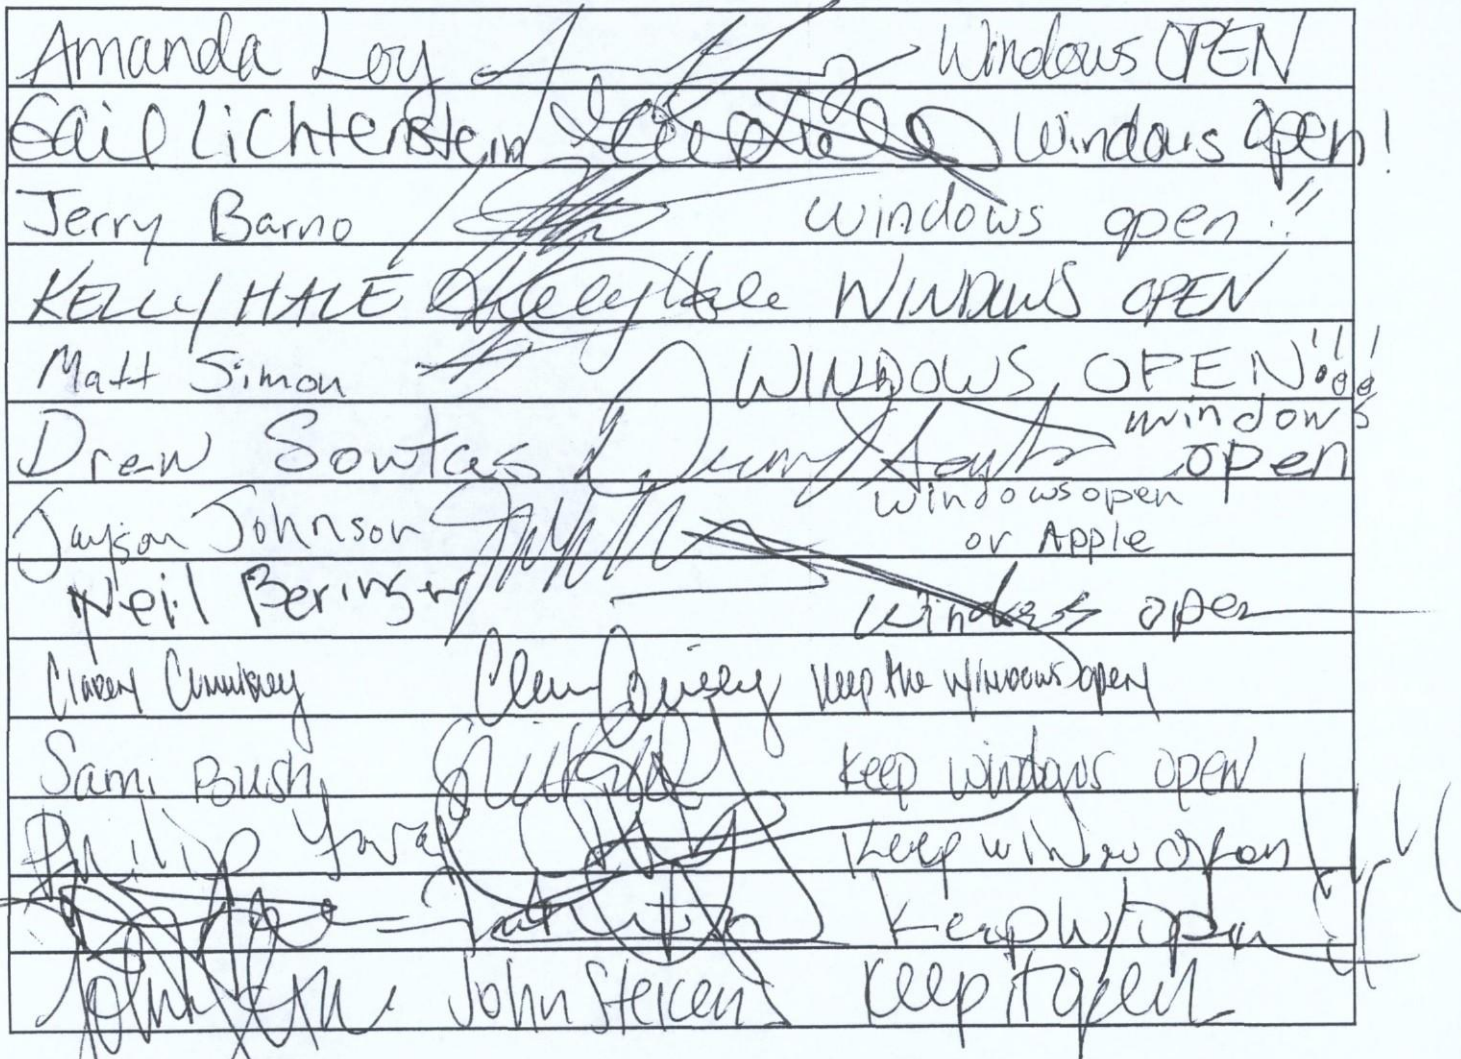 Amanda Loy Windows OPEN
Gail Lichtenstein Windows open!
Jerry Barno windows open!!
KELLY HALE Kelly Hale WINDOWS OPEN
Matt Simon WINDOWS OPEN!!!
Drew Sontag windows
open
Jayson Johnson windows open
or Apple
Neil Beringer windows open
keep the windows open
Sami Bush keep windows open
Philip keep window open
keep W/open
John Steken keep it open